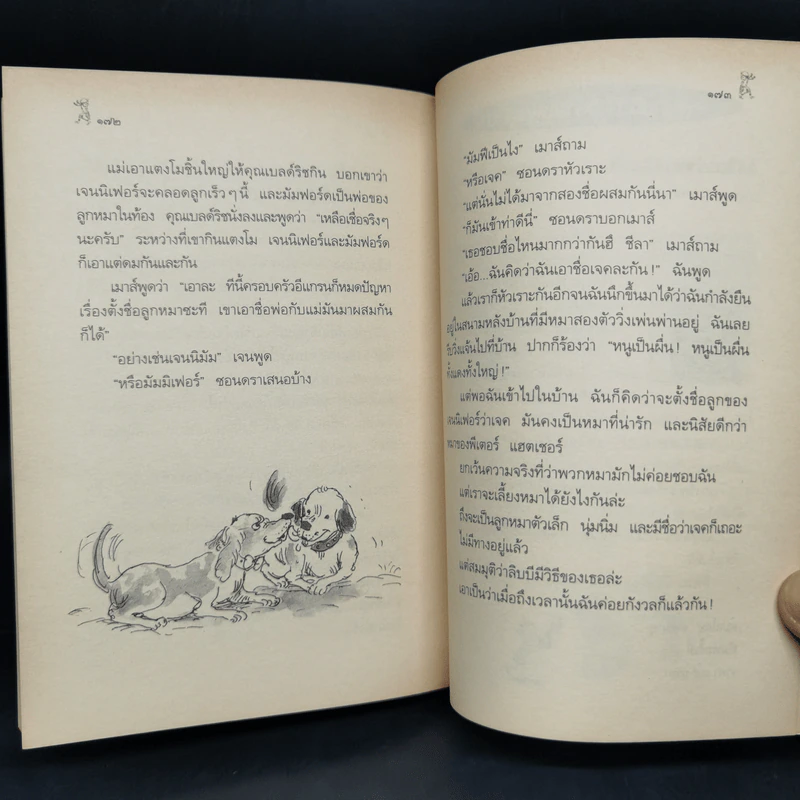 ๑๗๒
แม่เอาแตงโมชิ้นใหญ่ให้คุณเบลด์ริชกิน บอกเขาว่า
เจนนิเฟอร์จะคลอดลูกเร็วๆนี้ และมัมฟอร์ดเป็นพ่อของ
ลูกหมาในท้อง คุณเบลด์ริชนั่งลงและพูดว่า “เหลือเชื่อจริงๆ
นะครับ” ระหว่างที่เขากินแตงโม เจนนิเฟอร์และมัมฟอร์ด
ก็เอาแต่ดมกันและกัน
เมาส์พูดว่า “เอาละ ทีนี้ครอบครัวอีแกรนก็หมดปัญหา
เรื่องตั้งชื่อลูกหมาซะที เขาเอาชื่อพ่อกับแม่มันมาผสมกัน
ก็ได้”
“อย่างเช่นเจนนิมัม” เจนพูด
“หรือมัมมิเฟอร์” ซอนดราเสนอบ้าง
๑๗๓
“มัมฟีเป็นไง” เมาส์ถาม
“หรือเจค” ซอนดราหัวเราะ
“แต่นั่นไม่ได้มาจากสองชื่อผสมกันนี่นา” เมาส์พูด
“ก็มันเข้าท่าดีนี่” ซอนดราบอกเมาส์
“เธอชอบชื่อไหนมากกว่ากันฮึ ชีลา” เมาส์ถาม
“เอ้อ...ฉันคิดว่าฉันเอาชื่อเจคละกัน!” ฉันพูด
แล้วเราก็หัวเราะกันอีกจนฉันนึกขึ้นมาได้ว่าฉันกำลังยืน
อยู่ในสนามหลังบ้านที่มีหมาสองตัววิ่งเพ่นพ่านอยู่ ฉันเลย
รีบวิ่งแจ้นไปที่บ้าน ปากก็ร้องว่า “หนูเป็นผื่น! หนูเป็นผื่น
ทั้งแดงทั้งใหญ่!”
แต่พอฉันเข้าไปในบ้าน ฉันก็คิดว่าจะตั้งชื่อลูกของ
เจนนิเฟอร์ว่าเจค มันคงเป็นหมาที่น่ารัก และนิสัยดีกว่า
หมาของพีเตอร์ แฮตเชอร์
ยกเว้นความจริงที่ว่าพวกหมามักไม่ค่อยชอบฉัน
แต่เราจะเลี้ยงหมาได้ยังไงกันล่ะ
ถึงจะเป็นลูกหมาตัวเล็ก นุ่มนิ่ม และมีชื่อว่าเจคก็เถอะ
ไม่มีทางอยู่แล้ว
แต่สมมุติว่าลิบบีมีวิธีของเธอล่ะ
เอาเป็นว่าเมื่อถึงเวลานั้นฉันค่อยกังวลก็แล้วกัน!